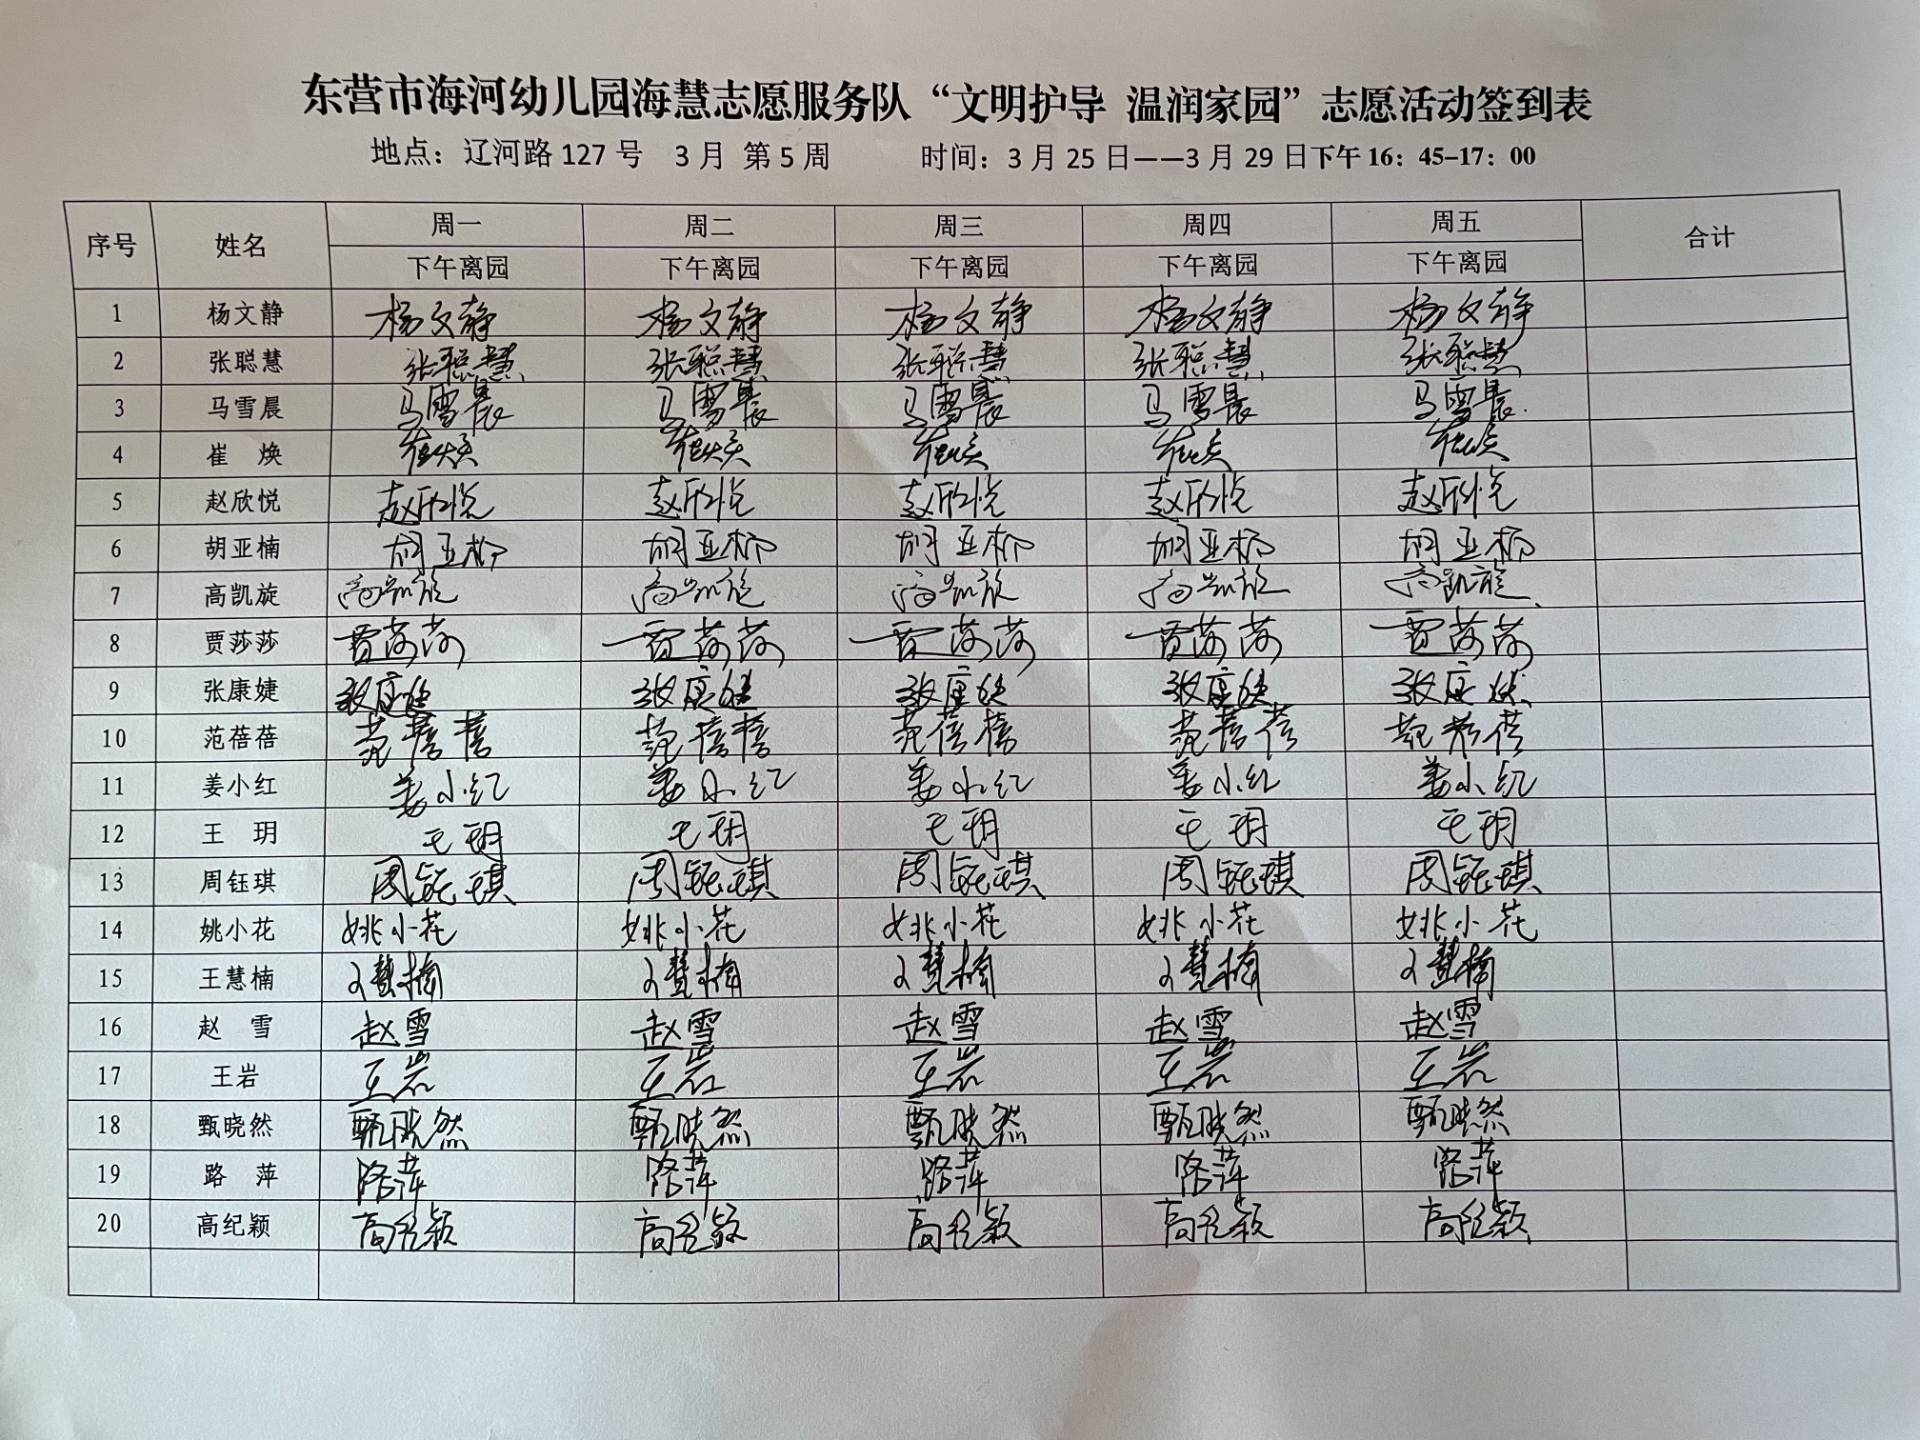 东营市海河幼儿园海慧志愿服务队“文明护导 温润家园”志愿活动签到表
地点：辽河路127号 3月 第5周 时间：3月25日——3月29日下午16：45-17：00
序号 姓名 周一 周二 周三 周四 周五 合计
下午离园 下午离园 下午离园 下午离园 下午离园
1 杨文静 杨文静 杨文静 杨文静 杨文静 杨文静
2 张聪慧 张聪慧 张聪慧 张聪慧 张聪慧 张聪慧
3 马雪晨 马雪晨 马雪晨 马雪晨 马雪晨 马雪晨
4 崔 焕 崔焕 崔焕 崔焕 崔焕 崔焕
5 赵欣悦 赵欣悦 赵欣悦 赵欣悦 赵欣悦 赵欣悦
6 胡亚楠 胡亚楠 胡亚楠 胡亚楠 胡亚楠 胡亚楠
7 高凯旋 高凯旋 高凯旋 高凯旋 高凯旋 高凯旋
8 贾莎莎 贾莎莎 贾莎莎 贾莎莎 贾莎莎 贾莎莎
9 张康婕 张康婕 张康婕 张康婕 张康婕 张康婕
10 范蓓蓓 范蓓蓓 范蓓蓓 范蓓蓓 范蓓蓓 范蓓蓓
11 姜小红 姜小红 姜小红 姜小红 姜小红 姜小红
12 王 玥 王玥 王玥 王玥 王玥 王玥
13 周钰琪 周钰琪 周钰琪 周钰琪 周钰琪 周钰琪
14 姚小花 姚小花 姚小花 姚小花 姚小花 姚小花
15 王慧楠 王慧楠 王慧楠 王慧楠 王慧楠 王慧楠
16 赵 雪 赵雪 赵雪 赵雪 赵雪 赵雪
17 王岩 王岩 王岩 王岩 王岩 王岩
18 甄晓然 甄晓然 甄晓然 甄晓然 甄晓然 甄晓然
19 路 萍 路萍 路萍 路萍 路萍 路萍
20 高纪颖 高纪颖 高纪颖 高纪颖 高纪颖 高纪颖